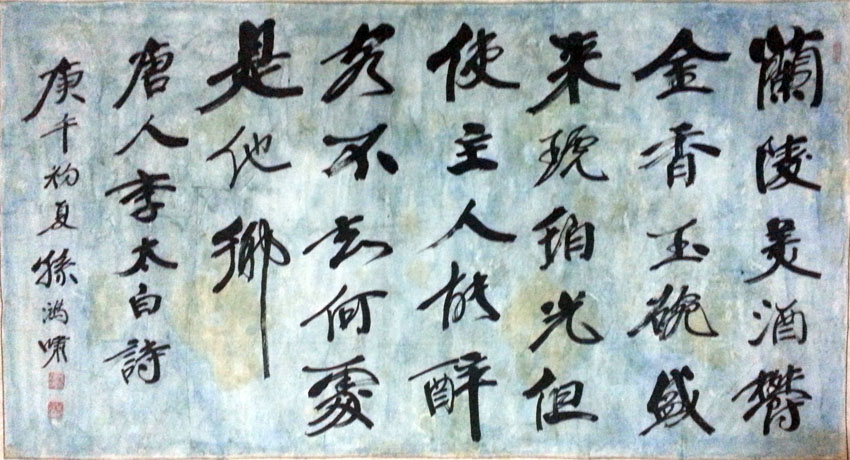 蘭陵美酒鬱
金香玉碗盛
来琥珀光但
使主人能醉
客不知何處
是他鄉
唐人李太白詩
庚午初夏孫鴻嘯